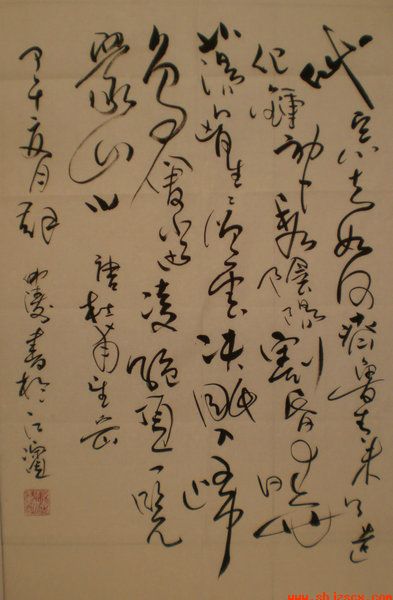 岱宗夫如何齊魯青未了造
化鍾神秀陰陽割昏曉
蕩胸生層雲決眦入歸
鳥會當凌絕頂一覽
衆山小
唐杜甫望岳
午夏月
書於江濱
www.shjzscx.com